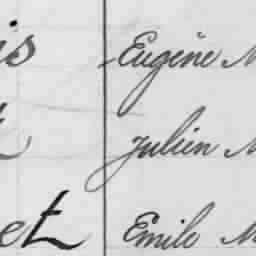 is Eugène M
t Julien M
et Emile M